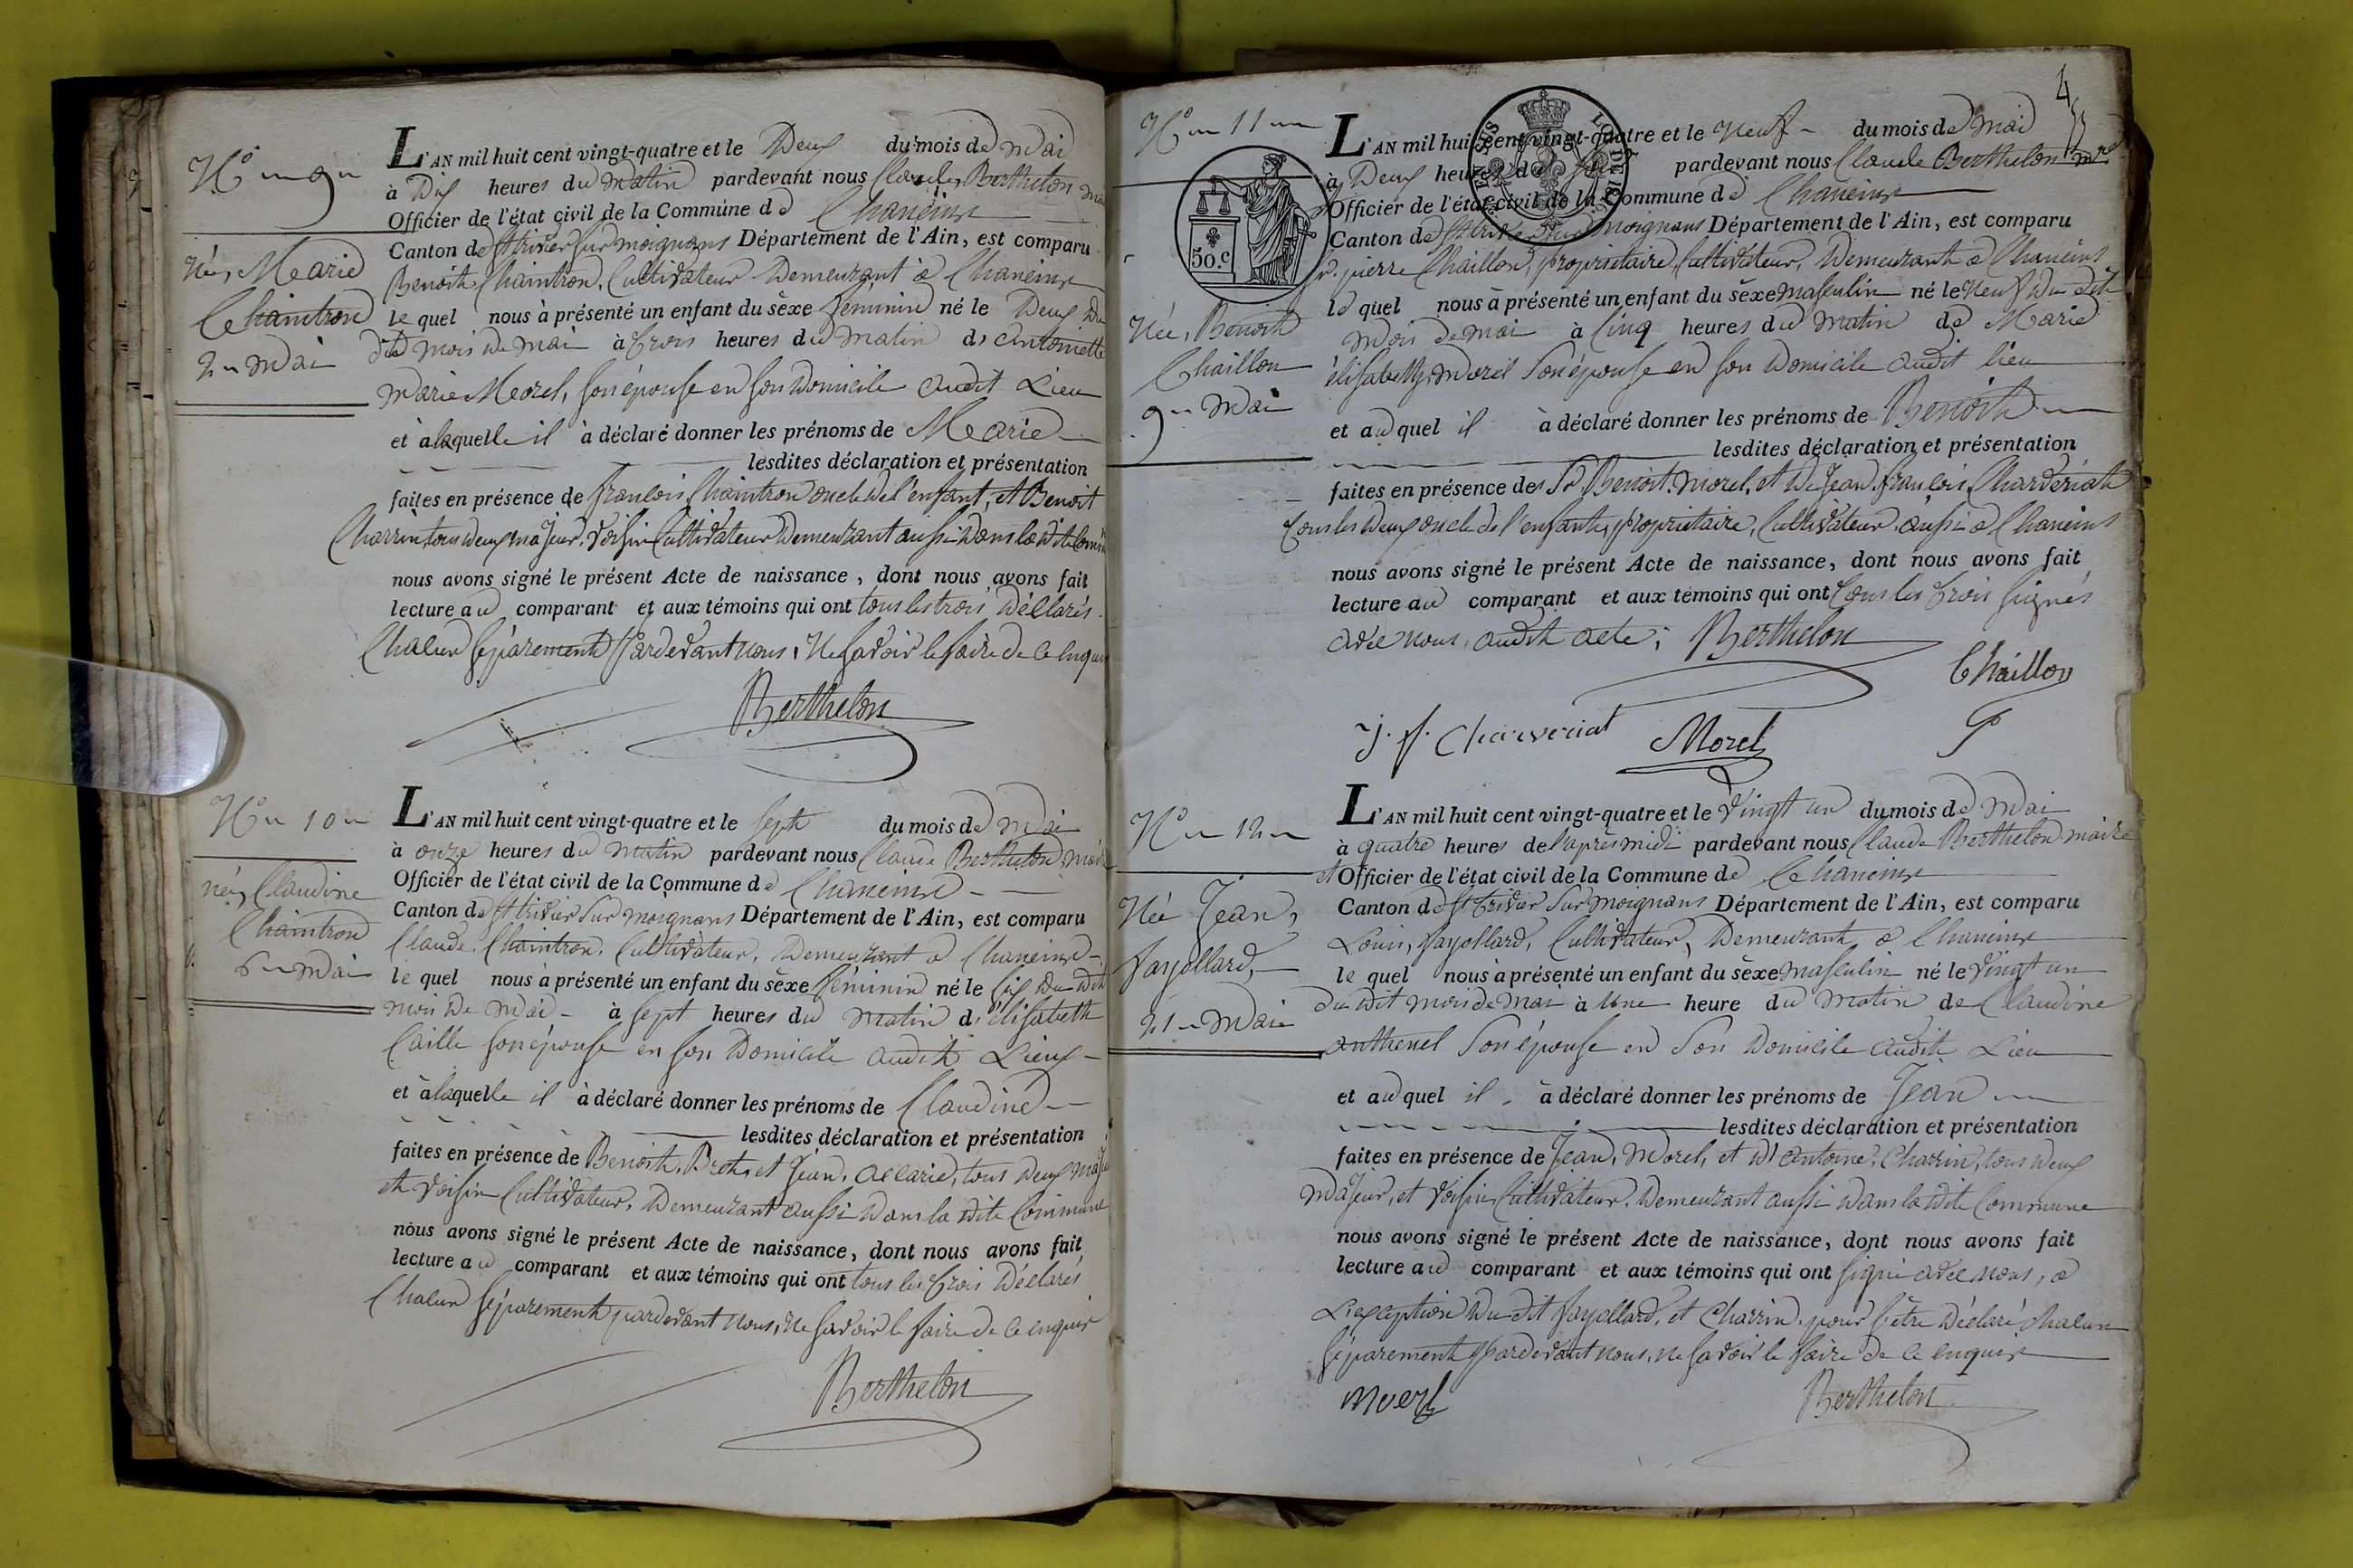 N° 9
Née, Marie
Chaintron
2 Mai
L'AN mil huit cent vingt-quatre et le Deux du mois de Mai
à Dix heures du Matin pardevant nous Claude Berthelon
Officier de l'état civil de la Commune de Chaneins
Canton de St trivier sur moignans Département de l'Ain, est comparu
Benoit Chaintron, Cultivateur Demeurant à Chaneins
le quel nous à présenté un enfant du sèxe feminin né le Deux Du
dit mois de mai à trois heures du matin d'antoinette
Marie Morel, son épouse en son Domicile audit Lieu
et à laquelle il à déclaré donner les prénoms de Marie
lesdites déclaration et présentation
faites en présence de françois Chaintron oncle de l'enfant, et Benoit
Charrin tous deux majeur, voisin Cultivateur Demeurant aussi dans la dite
nous avons signé le présent Acte de naissance, dont nous avons fait
lecture au comparant et aux témoins qui ont tous les trois Déclarés
Chacun séparement pardevant nous, Ne savoir le faire de ce enquis
Berthelon
N° 10
née, Claudine
Chaintron
6 Mai
L'AN mil huit cent vingt-quatre et le Sept du mois de Mai
à onze heures du Matin pardevant nous Claude Berthelon maire
Officier de l'état civil de la Commune de Chaneins
Canton de St trivier Sur moignans Département de l'Ain, est comparu
Claude Chaintron, Cultivateur, Demeurant à Chaneins
le quel nous à présenté un enfant du sèxe féminin né le six Du dit
mois De Mai à sept heures du Matin d'élisabeth
Caille son épouse en son Domicile audit Lieux
et à laquelle il à déclaré donner les prénoms de Claudine
lesdites déclaration et présentation
faites en présence de Benoit et Jean, tous deux
et voisin Cultivateur, Demeurant aussi dans la dite Commune
nous avons signé le présent Acte de naissance, dont nous avons fait
lecture au comparant et aux témoins qui ont tous les trois Déclarés
Chacun séparement pardevant nous, ne savoir le faire de ce enquis
Berthelon
4
N° 11
50.c
Née, Benoit
Chaillon
9 Mai
L'AN mil huit cent vingt-quatre et le Neuf du mois de Mai
à Deux heures du pardevant nous Claude Berthelon mre
Officier de l'état civil de la Commune de Chaneins
Canton de St trivier sur Moignans Département de l'Ain, est comparu
Sr. pierre Chaillon, propriétaire Cultivateur, Demeurant à Chaneins
le quel nous à présenté un enfant du sèxe masculin né le Neuf Du dit
Mois de mai à Cinq heures du Matin de Marie
élisabeth, Morel Son épouse en son Domicile audit lieu
et auquel il à déclaré donner les prénoms de Benoit
lesdites déclaration et présentation
faites en présence des Sr Benoit Morel, et de Jean françois Charvériat
tous les deux oncle de l'enfant, propriétaire, Cultivateur aussi à Chaneins
nous avons signé le présent Acte de naissance, dont nous avons fait
lecture au comparant et aux témoins qui ont tous les trois signés
avec nous, audit acte; Berthelon
Chaillon
j. f. Charveriat Morel P
N° 12
Née Jean,
fayollard,
21 Mai
L'AN mil huit cent vingt-quatre et le Vingt un du mois de Mai
à quatre heures de l'après midi pardevant nous Claude Berthelon maire
et Officier de l'état civil de la Commune de Chaneins
Canton de St trivier Sur moignans Département de l'Ain, est comparu
Louis, fayollard, Cultivateur, Demeurant à Chaneins
le quel nous à présenté un enfant du sèxe masculin né le Vingt un
du dit mois de Mai à Une heure du Matin de Claudine
Son épouse en Son Domicile audit Lieu
et auquel il à déclaré donner les prénoms de Jean
lesdites déclaration et présentation
faites en présence de Jean, Morel, et d'antoine, Charrin, tous deux
Majeur, et voisin Cultivateur, Demeurant aussi dans la dite Commune
nous avons signé le présent Acte de naissance, dont nous avons fait
lecture au comparant et aux témoins qui ont signé avec nous, à
L'exception Du dit fayollard, et Charrin, pour s'être Déclaré Chacun
séparement pardevant nous, ne savoir le faire de ce enquis
Berthelon